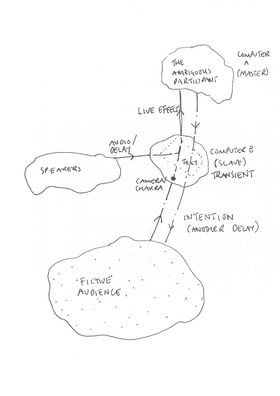 THE
AMBIGUOUS
PARTICIPANT
COMPUTER
A
(MASTER)
LIVE EFFECT
AUDIO/
DELAY
SPEAKERS
TEXT
COMPUTER B
(SLAVE)
TRANSIENT
CAMERA/
CHAKRA
INTENTION
(ANOTHER DELAY)
FICTIVE
AUDIENCE